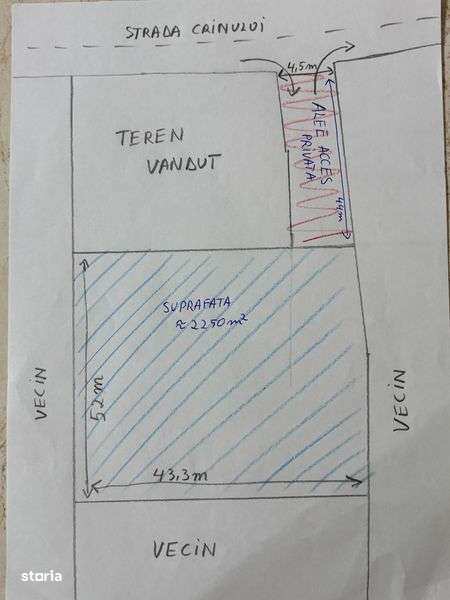 STRADA CRINULUI
4,5m
TEREN
VANDUT
ALEE ACCES
PRIVATA
44m
SUPRAFATA
≈ 2250 m²
VECIN
52m
43,3m
VECIN
VECIN
storia